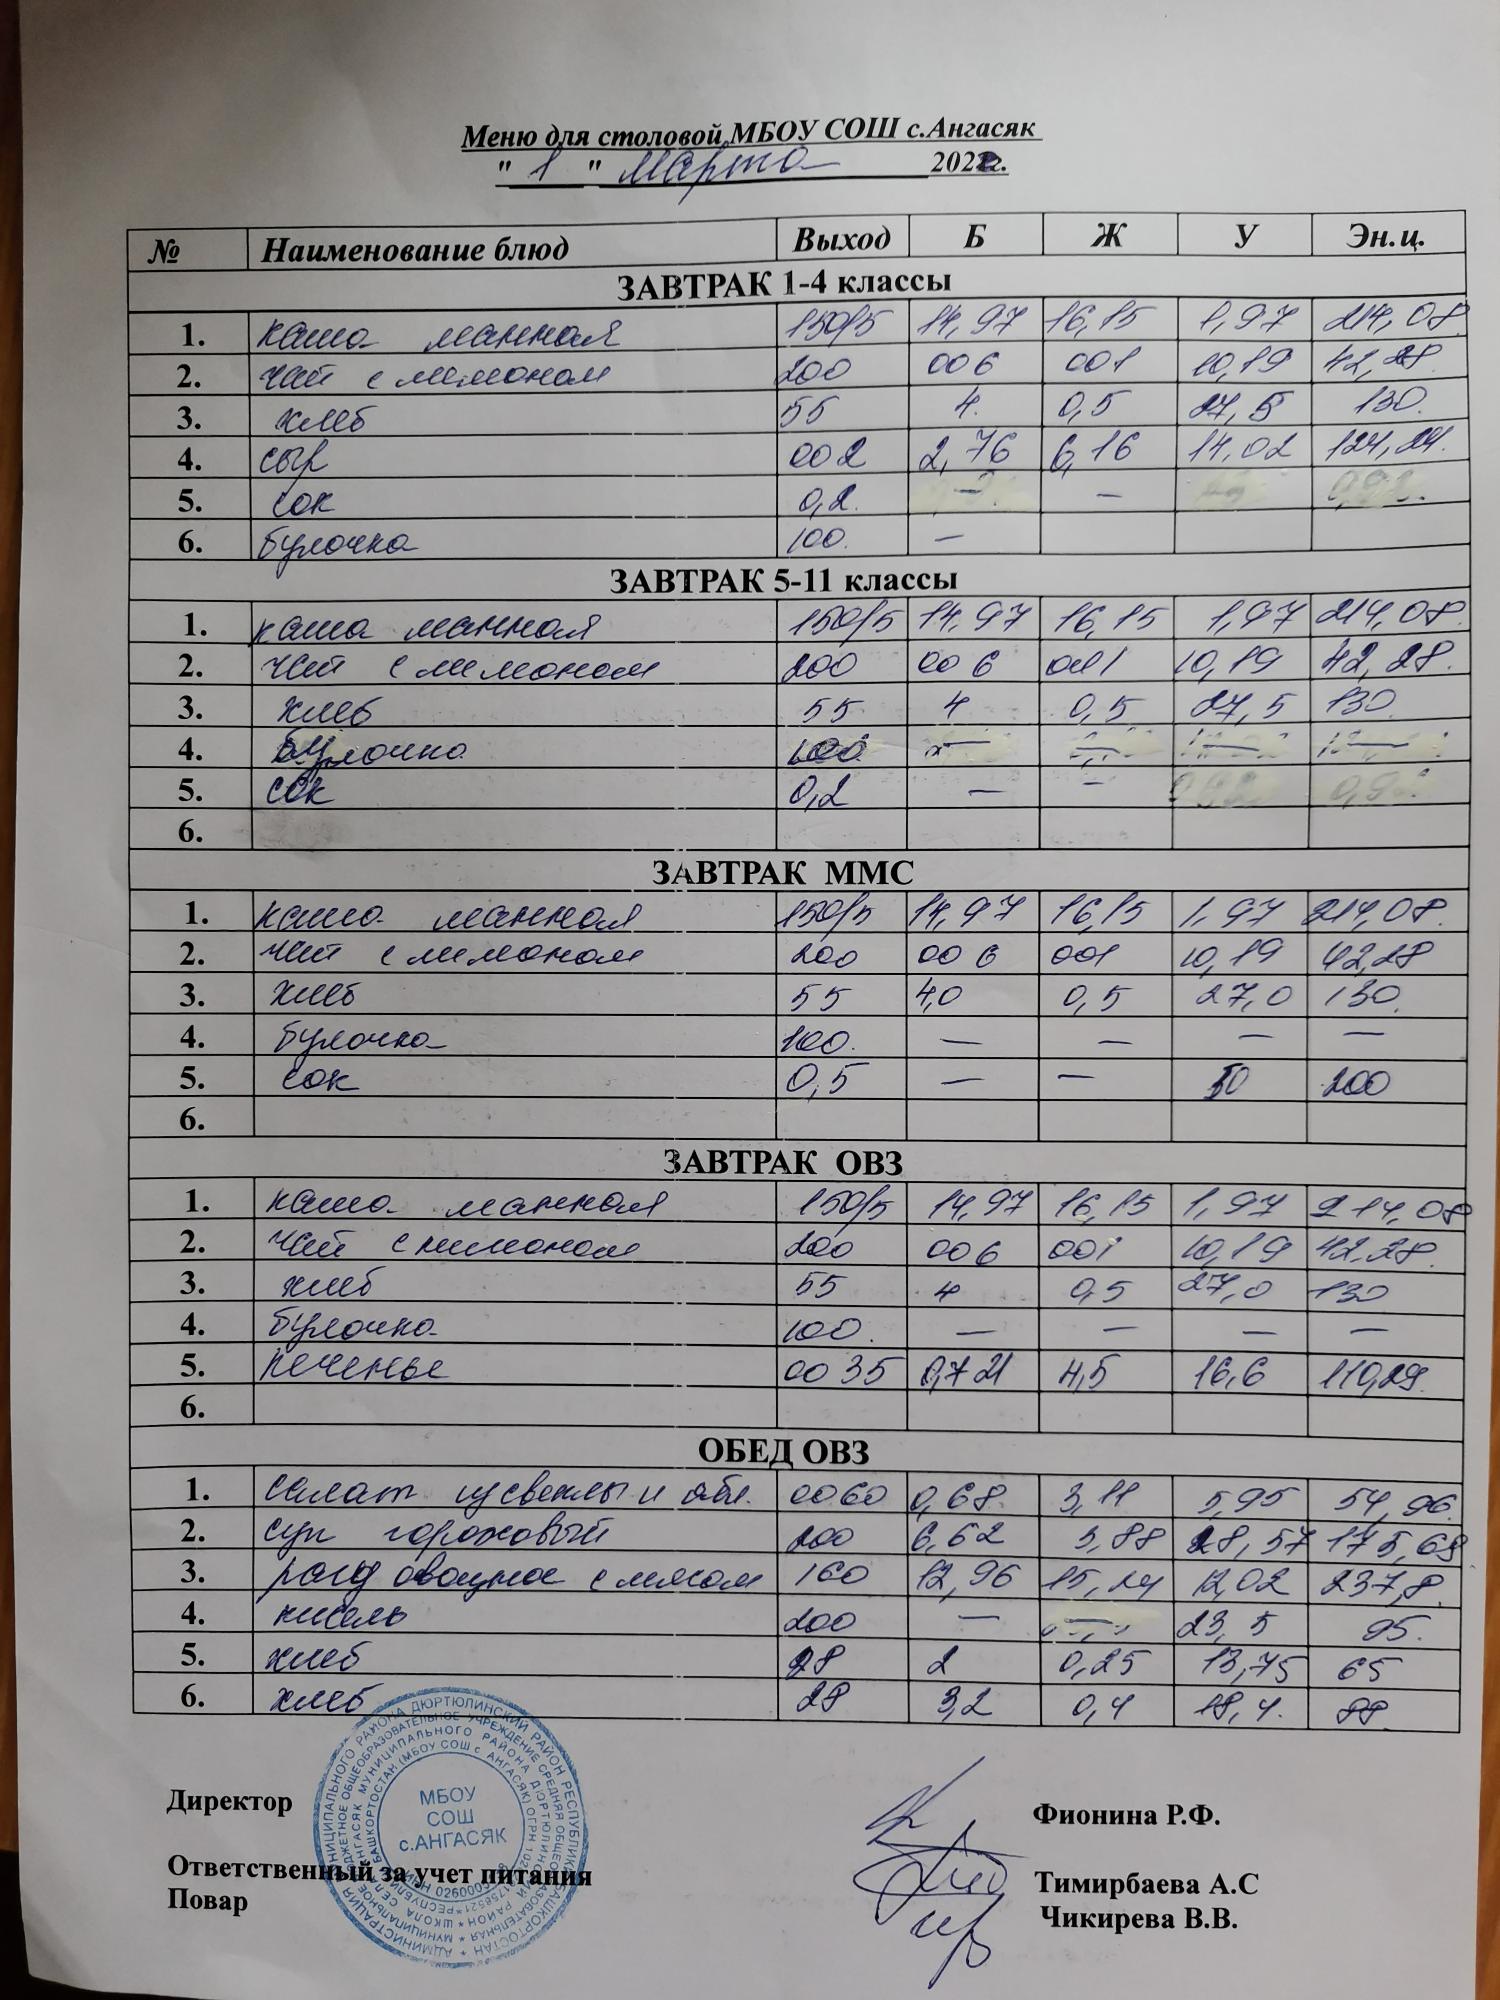 Меню для столовой МБОУ СОШ с.Ангасяк
" 1 " марта 2022г.
№ Наименование блюд Выход Б Ж У Эн.ц.
ЗАВТРАК 1-4 классы
1. каша манная 150/5 14,97 16,15 1,97 214,08
2. чай с лимоном 200 006 001 10,19 42,28
3. хлеб 55 4 0,5 27,5 130
4. сыр 002 2,76 6,16 14,02 124,24
5. сок 0,2 — —
6. булочка 100 —
ЗАВТРАК 5-11 классы
1. каша манная 150/5 14,97 16,15 1,97 214,08
2. чай с лимоном 200 006 001 10,19 42,28
3. хлеб 55 4 0,5 27,5 130
4. булочка 100 — — — —
5. сок 0,2 — —
6.
ЗАВТРАК ММС
1. каша манная 150/5 14,97 16,15 1,97 214,08
2. чай с лимоном 200 006 001 10,19 42,28
3. хлеб 55 4,0 0,5 27,0 130
4. булочка 100 — — — —
5. сок 0,5 — — 50 200
6.
ЗАВТРАК ОВЗ
1. каша манная 150/5 14,97 16,15 1,97 214,08
2. чай с лимоном 200 006 001 10,19 42,28
3. хлеб 55 4 0,5 27,0 130
4. булочка 100 — — — —
5. печенье 0035 0,721 4,5 16,6 110,29
6.
ОБЕД ОВЗ
1. салат из свеклы и ябл. 0060 0,68 3,11 5,95 54,96
2. суп гороховый 200 6,62 5,88 28,57 175,69
3. рагу овощное с мясом 160 12,96 15,24 12,02 237,8
4. кисель 200 — — 23,5 95
5. хлеб 28 2 0,25 13,75 65
6. хлеб 28 3,2 0,4 18,4 88
Директор Фионина Р.Ф.
МБОУ
СОШ
с.АНГАСЯК
Ответственный за учет питания Тимирбаева А.С
Повар Чикирева В.В.